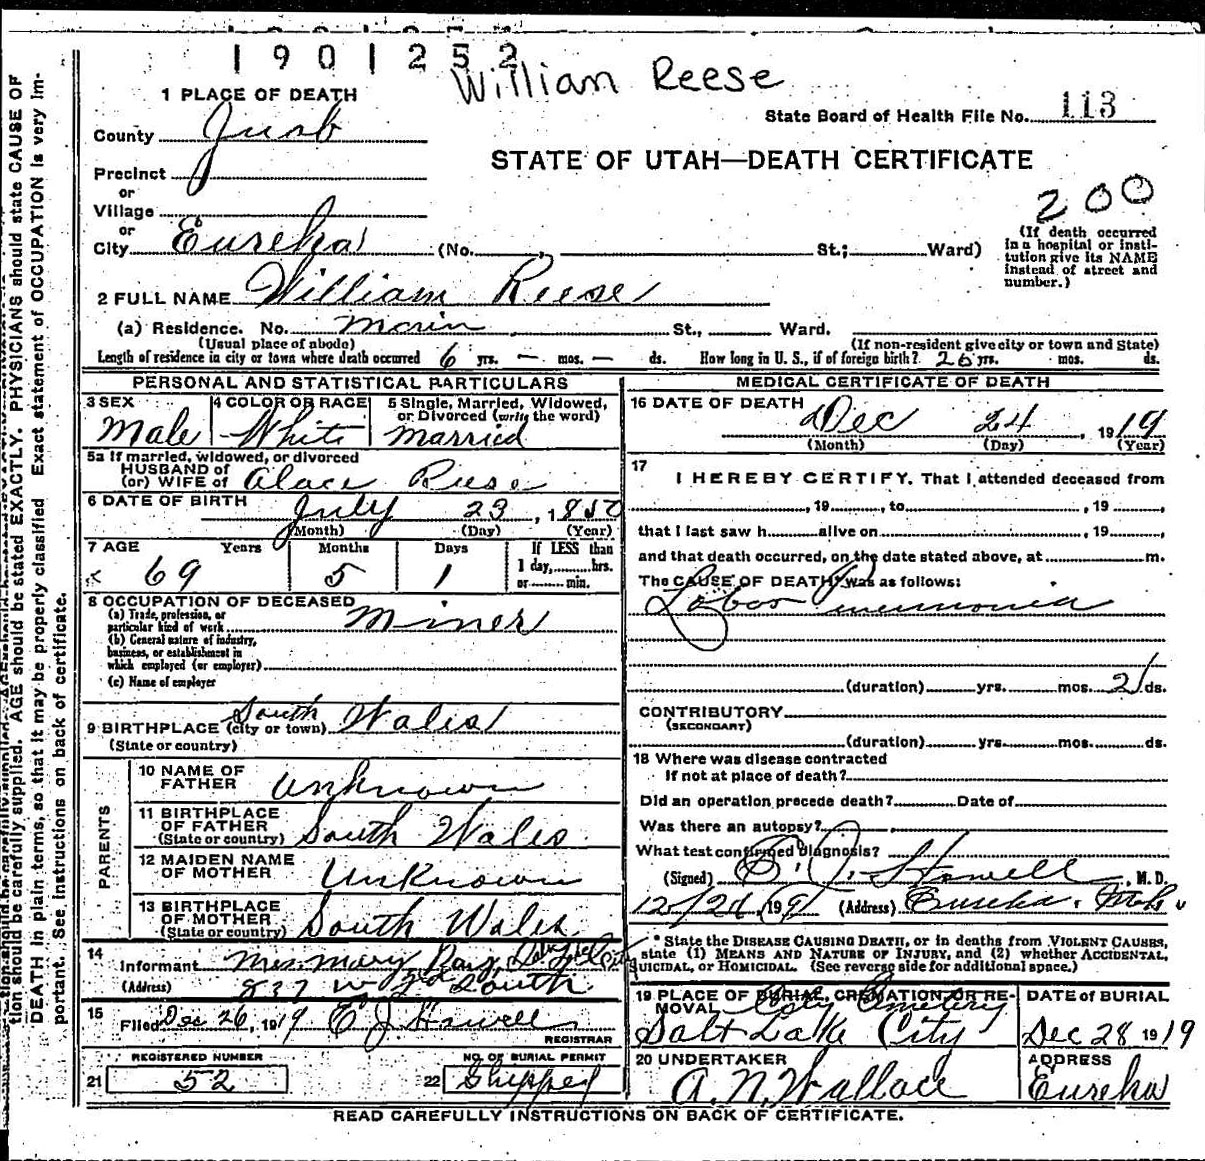 1901252
William Reese
1 PLACE OF DEATH
State Board of Health File No. 113
County Juab
STATE OF UTAH—DEATH CERTIFICATE
Precinct
or
Village
200
or
City Eureka (No. , St.; Ward)
(If death occurred in a hospital or institution give its NAME instead of street and number.)
2 FULL NAME William Reese
(a) Residence. No. Main St., Ward.
(Usual place of abode) (If non-resident give city or town and State)
Length of residence in city or town where death occurred 6 yrs. — mos. — ds. How long in U. S., if of foreign birth? 26 yrs. mos. ds.
PERSONAL AND STATISTICAL PARTICULARS
3 SEX 4 COLOR OR RACE 5 Single, Married, Widowed, or Divorced (write the word)
Male White Married
5a If married, widowed, or divorced
HUSBAND of
(or) WIFE of Alace Reese
6 DATE OF BIRTH July 23, 1850
(Month) (Day) (Year)
7 AGE Years Months Days If LESS than
1 day, hrs.
or min.
69 5 1
8 OCCUPATION OF DECEASED
(a) Trade, profession, or
particular kind of work Miner
(b) General nature of industry,
business, or establishment in
which employed (or employer)
(c) Name of employer
9 BIRTHPLACE (city or town) South Wales
(State or country)
PARENTS
10 NAME OF FATHER Unknown
11 BIRTHPLACE OF FATHER South Wales
(State or country)
12 MAIDEN NAME OF MOTHER Unknown
13 BIRTHPLACE OF MOTHER South Wales
(State or country)
14
Informant Mrs. Mary
(Address) 837 W 3rd South
15
Filed Dec 26, 1919 E J Howell
REGISTRAR
REGISTERED NUMBER NO. OF BURIAL PERMIT
21 52 22 Shipped
MEDICAL CERTIFICATE OF DEATH
16 DATE OF DEATH
Dec 24, 1919
(Month) (Day) (Year)
17
I HEREBY CERTIFY, That I attended deceased from
, 19 , to , 19 ,
that I last saw h alive on , 19 ,
and that death occurred, on the date stated above, at m.
The CAUSE OF DEATH* was as follows:
Lobar Pneumonia
(duration) yrs. mos. 2 ds.
CONTRIBUTORY
(SECONDARY)
(duration) yrs. mos. ds.
18 Where was disease contracted
If not at place of death?
Did an operation precede death? Date of
Was there an autopsy?
What test confirmed diagnosis?
(Signed) E. J. Howell, M. D.
12/26, 1919 (Address) Eureka, Utah
* State the DISEASE CAUSING DEATH, or in deaths from VIOLENT CAUSES,
state (1) MEANS AND NATURE OF INJURY, and (2) whether ACCIDENTAL,
SUICIDAL, or HOMICIDAL. (See reverse side for additional space.)
19 PLACE OF BURIAL, CREMATION OR REMOVAL City Cemetery
Salt Lake City
DATE OF BURIAL
Dec 28 1919
20 UNDERTAKER
A. N. Wallace
ADDRESS
Eureka
READ CAREFULLY INSTRUCTIONS ON BACK OF CERTIFICATE.
tion should be carefully supplied. AGE should be stated EXACTLY. PHYSICIANS should state CAUSE OF
DEATH in plain terms, so that it may be properly classified Exact statement of OCCUPATION is very im-
portant. See instructions on back of certificate.